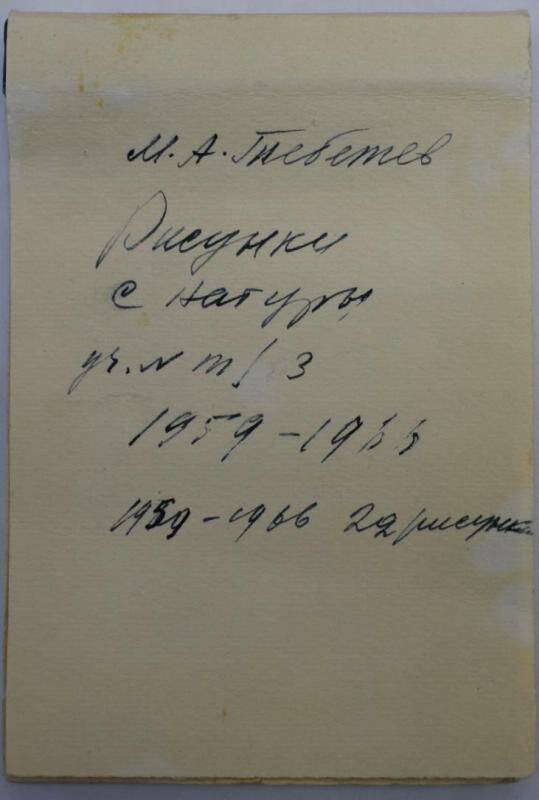 М. А. Гнебетев
Рисунки
с натуры
уч. N т/3
1959-1966
1959-1966 22 рисунка